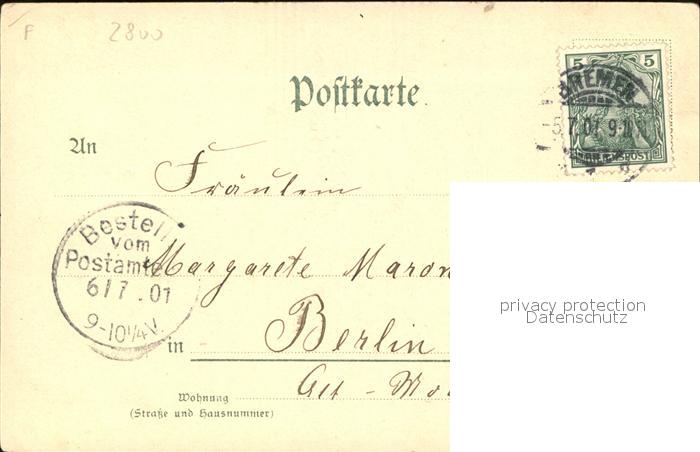 F 2800
Postkarte.
5 5
BREMEN
7.01 9-
An
Fräulein
Bestellt
vom
Postamte
6/7.01
9-10¼V.
Margarete Maron
privacy protection
Datenschutz
in Berlin
Alt - Mo
Wohnung
(Straße und Hausnummer)